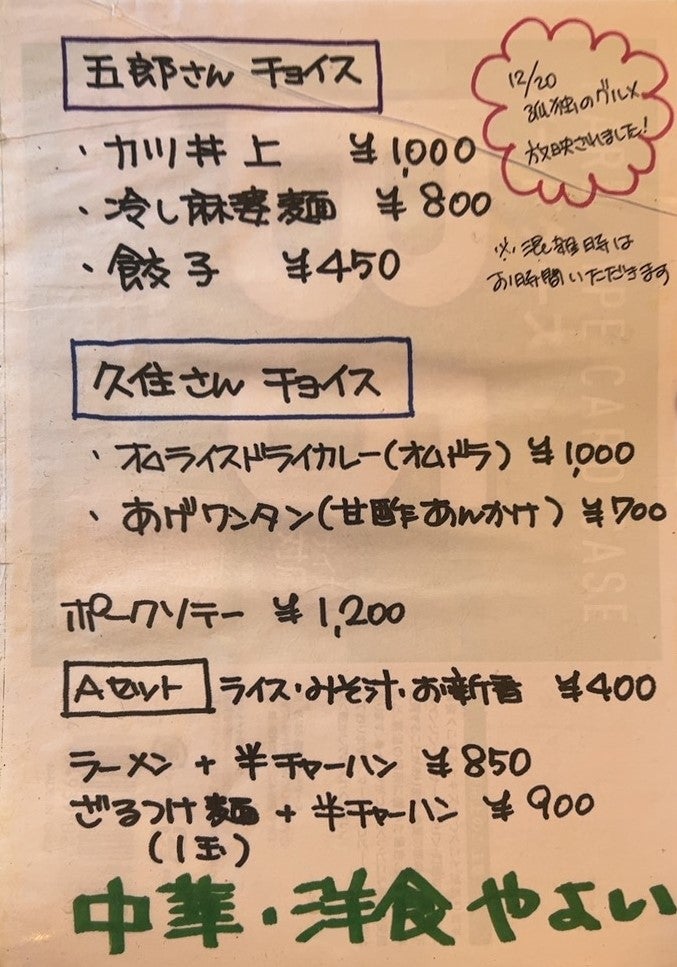 五郎さん チョイス
12/20
孤独のグルメ
放映されました!
・カツ丼 上 ¥1,000
・冷し麻婆麺 ¥800
・餃子 ¥450
※混雑時は
お時間いただきます
久住さん チョイス
・オムライスドライカレー(オムドラ) ¥1,000
・あげワンタン(甘酢あんかけ) ¥700
ポークソテー ¥1,200
Aセット ライス・みそ汁・お新香 ¥400
ラーメン + 半チャーハン ¥850
ざるつけ麺 + 半チャーハン ¥900
(1玉)
中華・洋食 やよい